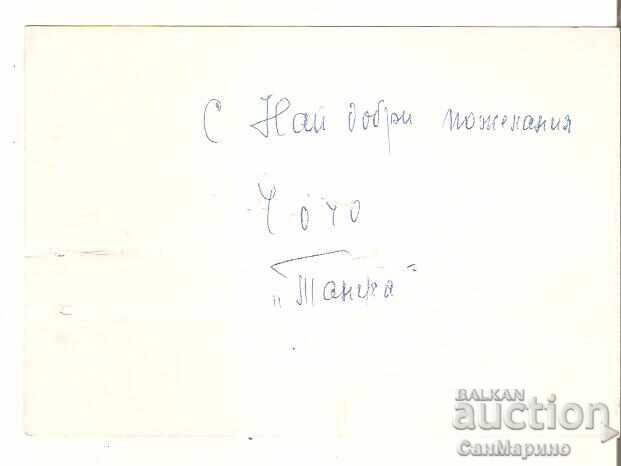 С Най добри пожелания
Чочо
„Танка“
BALKAN
auction
СанМарино